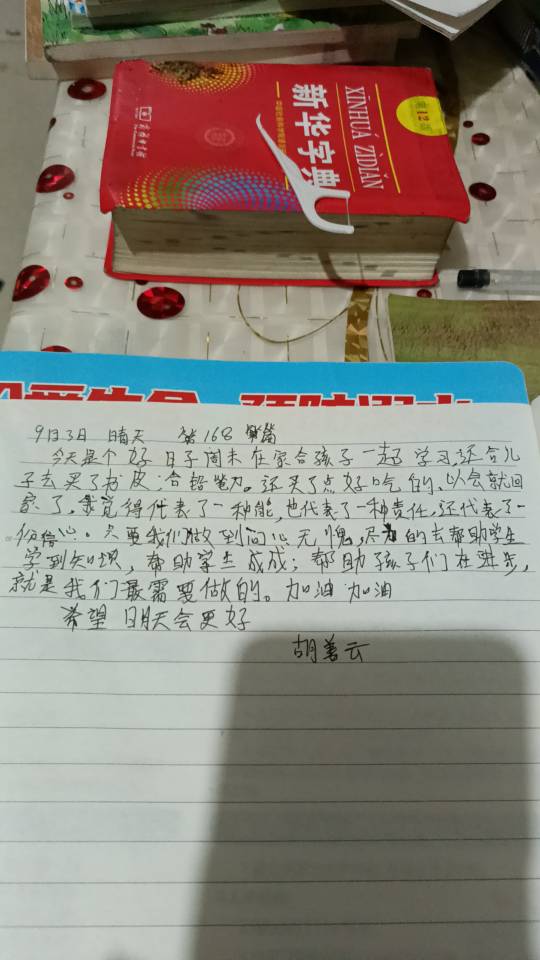 XĪNHUÁ ZÌDIǍN
新华字典
第12版
商务印书馆
9月3日 晴天 第168篇
今天是个好日子周末在家合孩子一起学习,还合儿
子去买了书皮合铅笔刀。还买了点好吃的,以会就回
家了,我觉得代表了一种能,也代表了一种责任,还代表了一
份信心。只要我们做到问心无愧,尽力的去帮助学生
学到知识,帮助学生成成;帮助孩子们在进步,
就是我们最需要做的。加油加油
希望明天会更好
胡善云